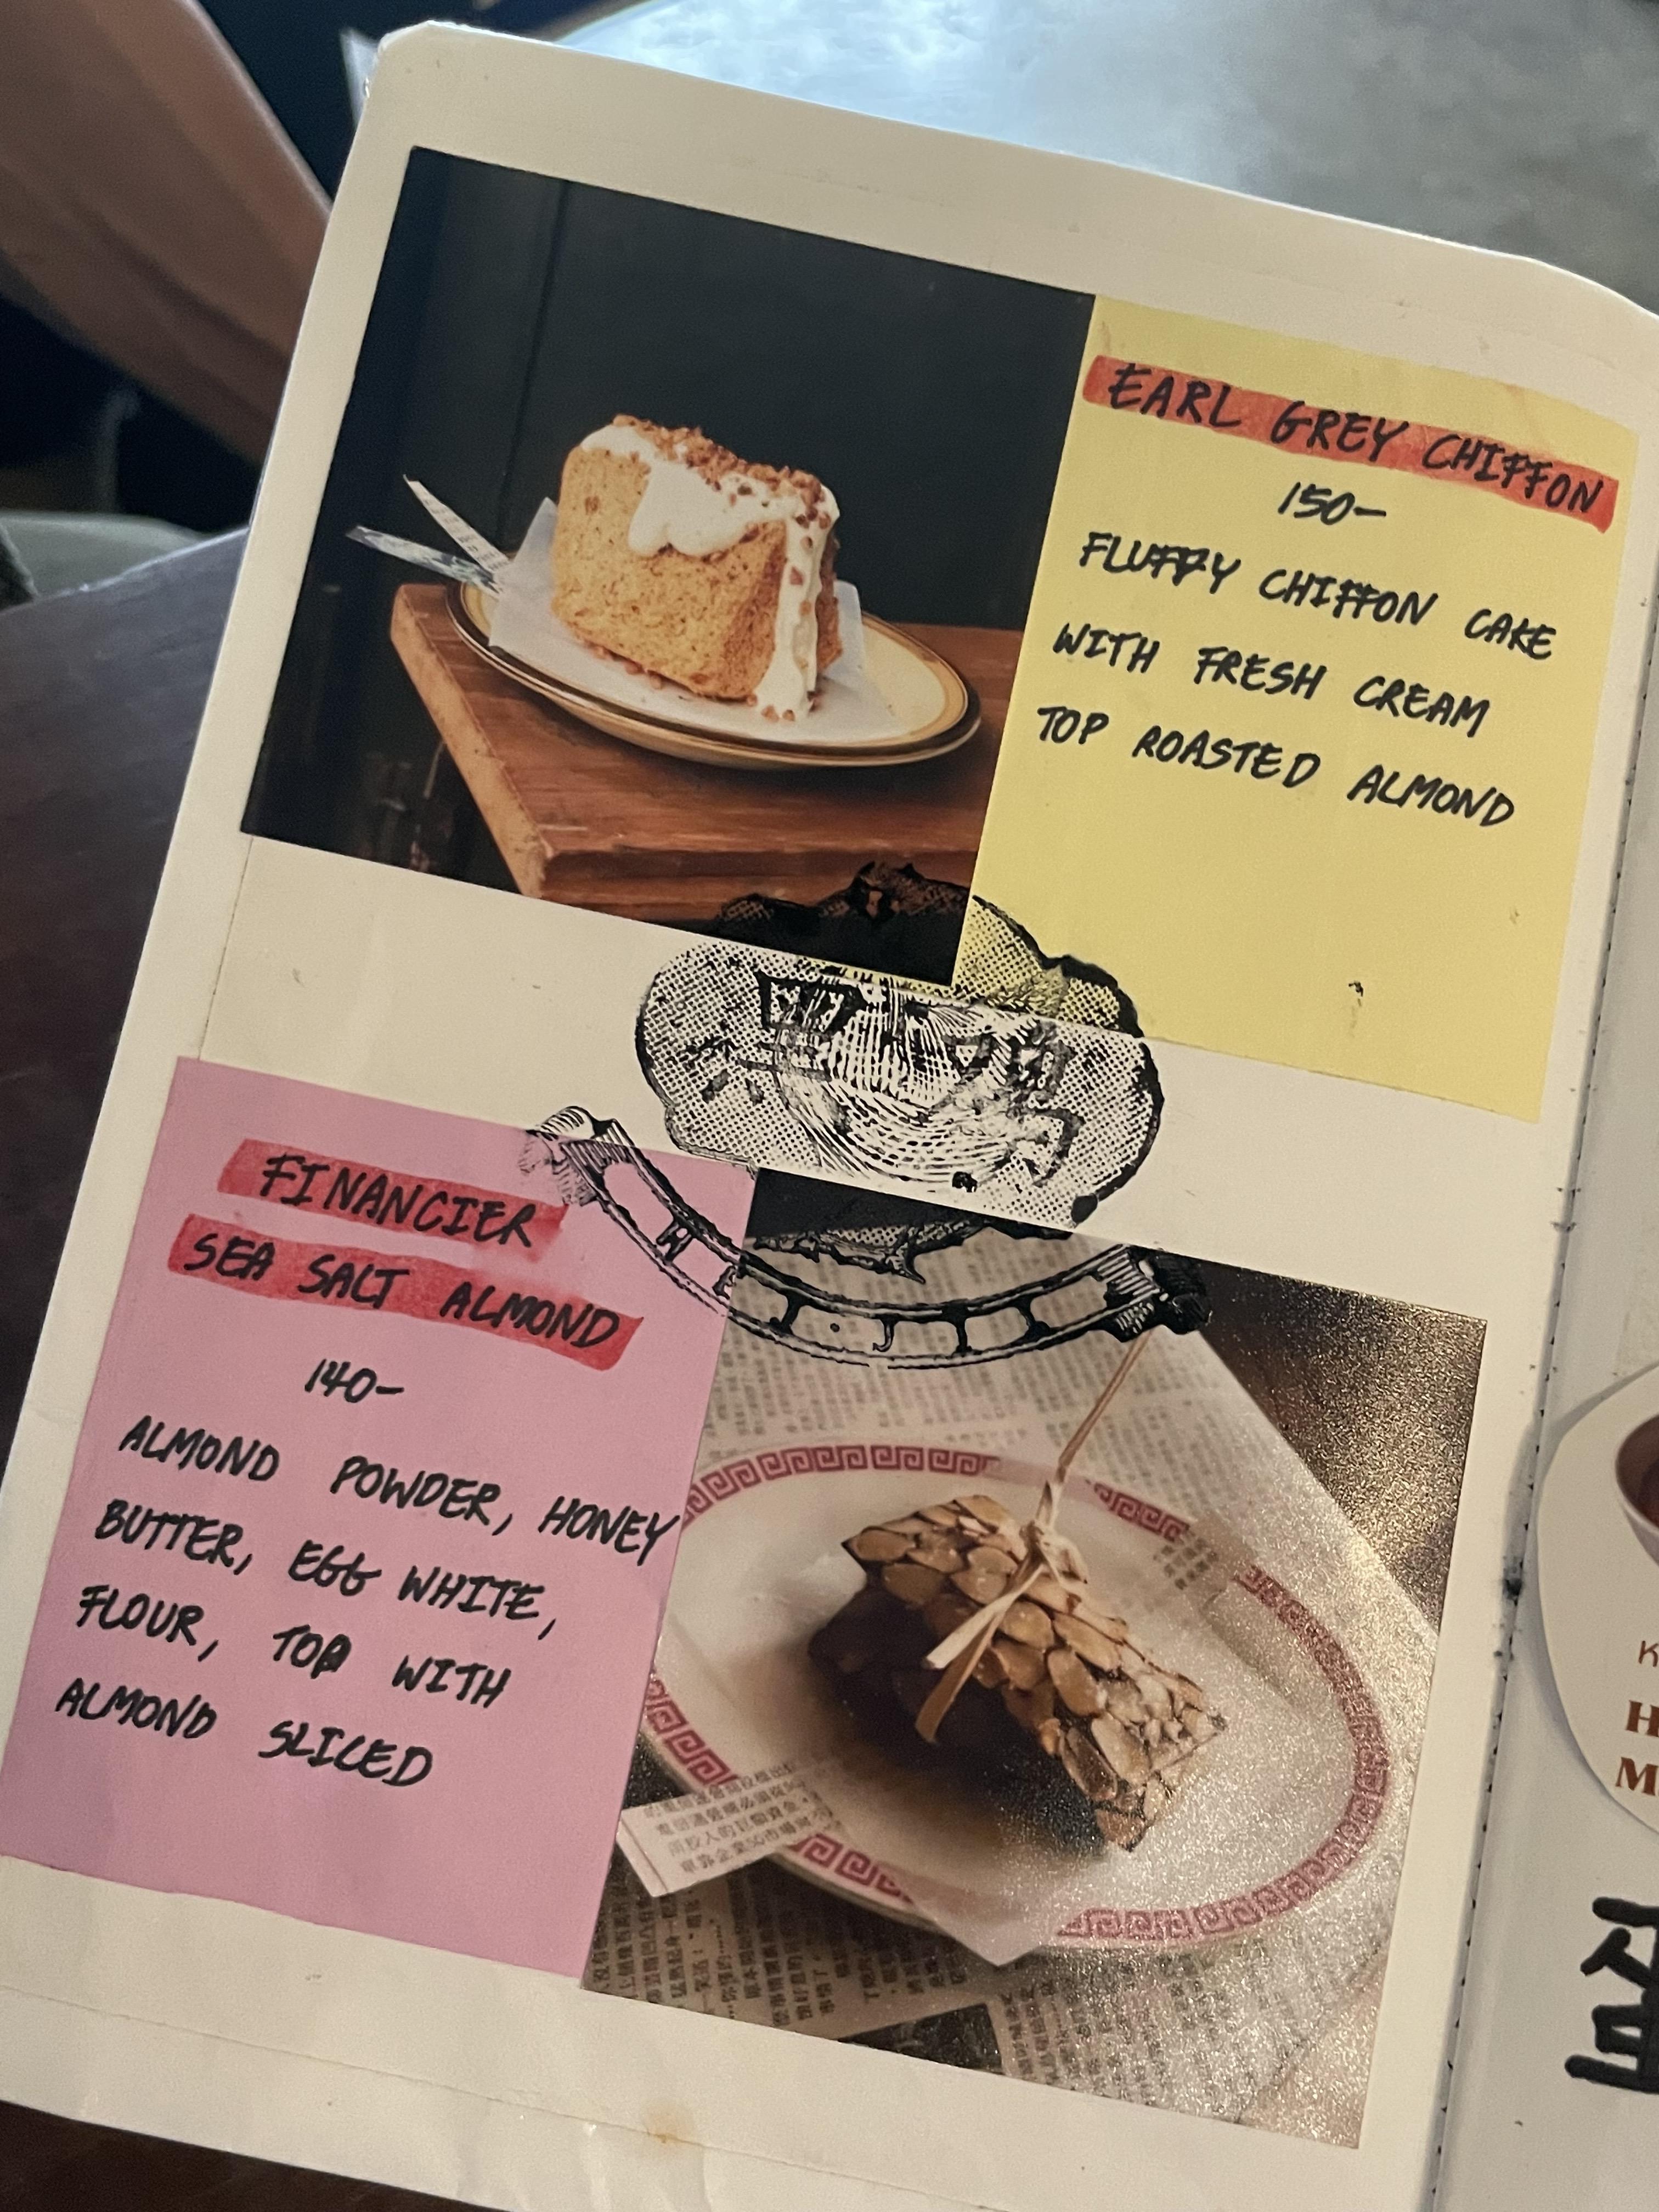 EARL GREY CHIFFON
150-
FLUFFY CHIFFON CAKE
WITH FRESH CREAM
TOP ROASTED ALMOND
FINANCIER
SEA SALT ALMOND
140-
ALMOND POWDER, HONEY
BUTTER, EGG WHITE,
FLOUR, TOP WITH
ALMOND SLICED